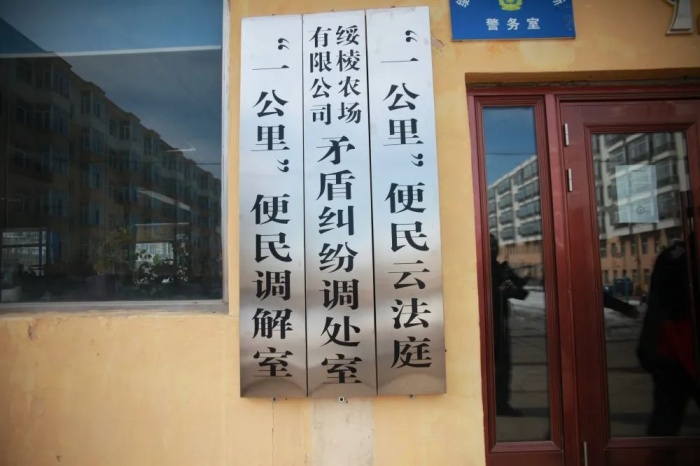 警务室
“一公里”便民调解室
绥棱农场
有限公司
矛盾纠纷调处室
“一公里”便民云法庭